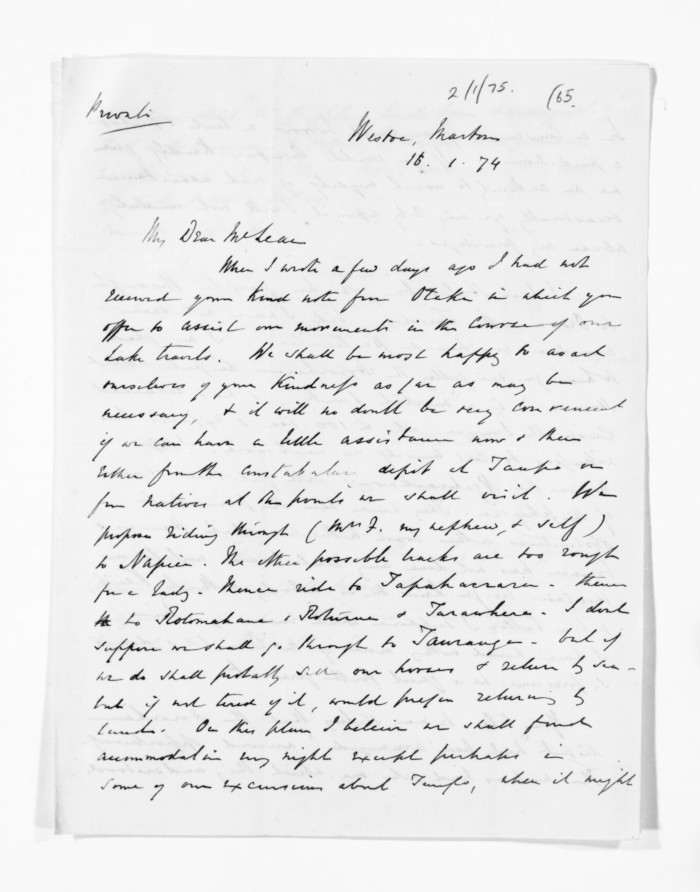 2/1/75. (65.
Private
Westoe, Marton
15. 1. 74
My Dear McLean
When I wrote a few days ago I had not
received your kind note from Otaki in which you
offer to assist our movements in the course of our
Lake travels. We shall be most happy to avail
ourselves of your kindness as far as may be
necessary, & it will no doubt be very convenient
if we can have a little assistance now & then
either from the constabulary depot at Taupo or
from natives at the points we shall visit. We
propose riding through (Mrs F. my nephew, & self)
to Napier. The other possible tracks are too rough
for a lady. Thence ride to Tapuaeharuru - thence
to Rotomahana & Rotorua & Tarawera. I don't
suppose we shall go through to Tauranga - but if
we do shall probably sell our horses & return by sea -
but if not tired of it, would prefer returning by
land. On this plan I believe we shall find
accommodation every night except perhaps in
some of our excursions about Taupo, when it might